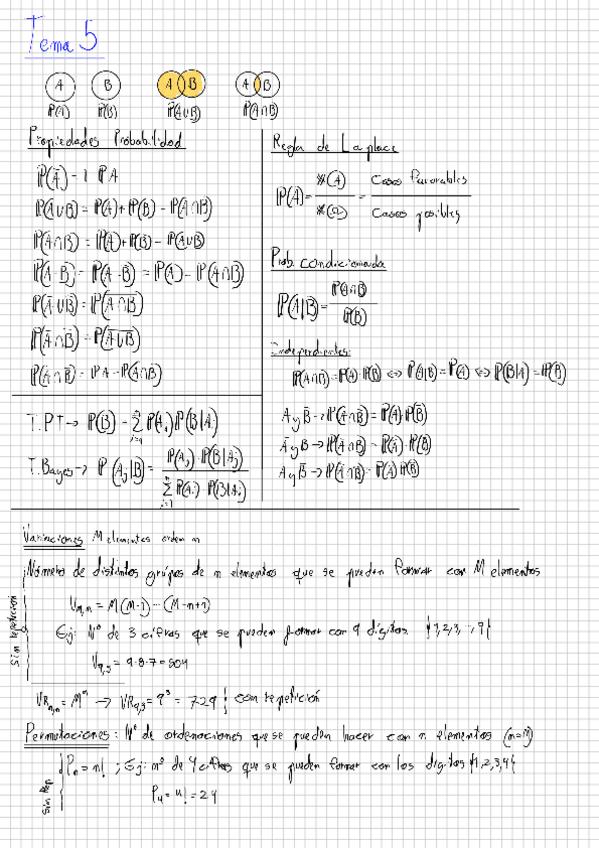 Tema 5
A B A B A B
P(A) P(B) P(A∪B) P(A∩B)
Propiedades Probabilidad
P(Ā) = 1 - P(A)
P(A∪B) = P(A) + P(B) - P(A∩B)
P(A∩B) = P(A) + P(B) - P(A∪B)
P(A-B) = P(A∩B̄) = P(A) - P(A∩B)
P(Ā∪B̄) = P(\overline{A∩B})
P(Ā∩B̄) = P(\overline{A∪B})
Regla de Laplace
P(A) = #(A) / #(Ω) = Casos favorables / Casos posibles
Prob. condicionada
P(A|B) = P(A∩B) / P(B)
Independientes:
P(A∩B) = P(A)·P(B) ⇔ P(A|B) = P(A) ⇔ P(B|A) = P(B)
T.PT → P(B) = Σ P(Ai) P(B|Ai)
T.Bayes → P(Aj|B) = P(Aj)·P(B|Aj) / Σ P(Ai)·P(B|Ai)
Variaciones M elementos orden n
Número de distintos grupos de n elementos que se pueden formar con M elementos
Vm,n = M(M-1)···(M-n+1)
Ej: Nº de 3 cifras que se pueden formar con 9 dígitos {1,2,3,...,9}
V9,3 = 9·8·7 = 504
Sin repetición
VRm,n = Mⁿ → VR9,3 = 9³ = 729 con repetición
Permutaciones: Nº de ordenaciones que se pueden hacer con n elementos (n=M)
Sin Rep
Pn = n! ; Ej: nº de 4 cifras que se pueden formar con los dígitos {1,2,3,4}
P4 = 4! = 24